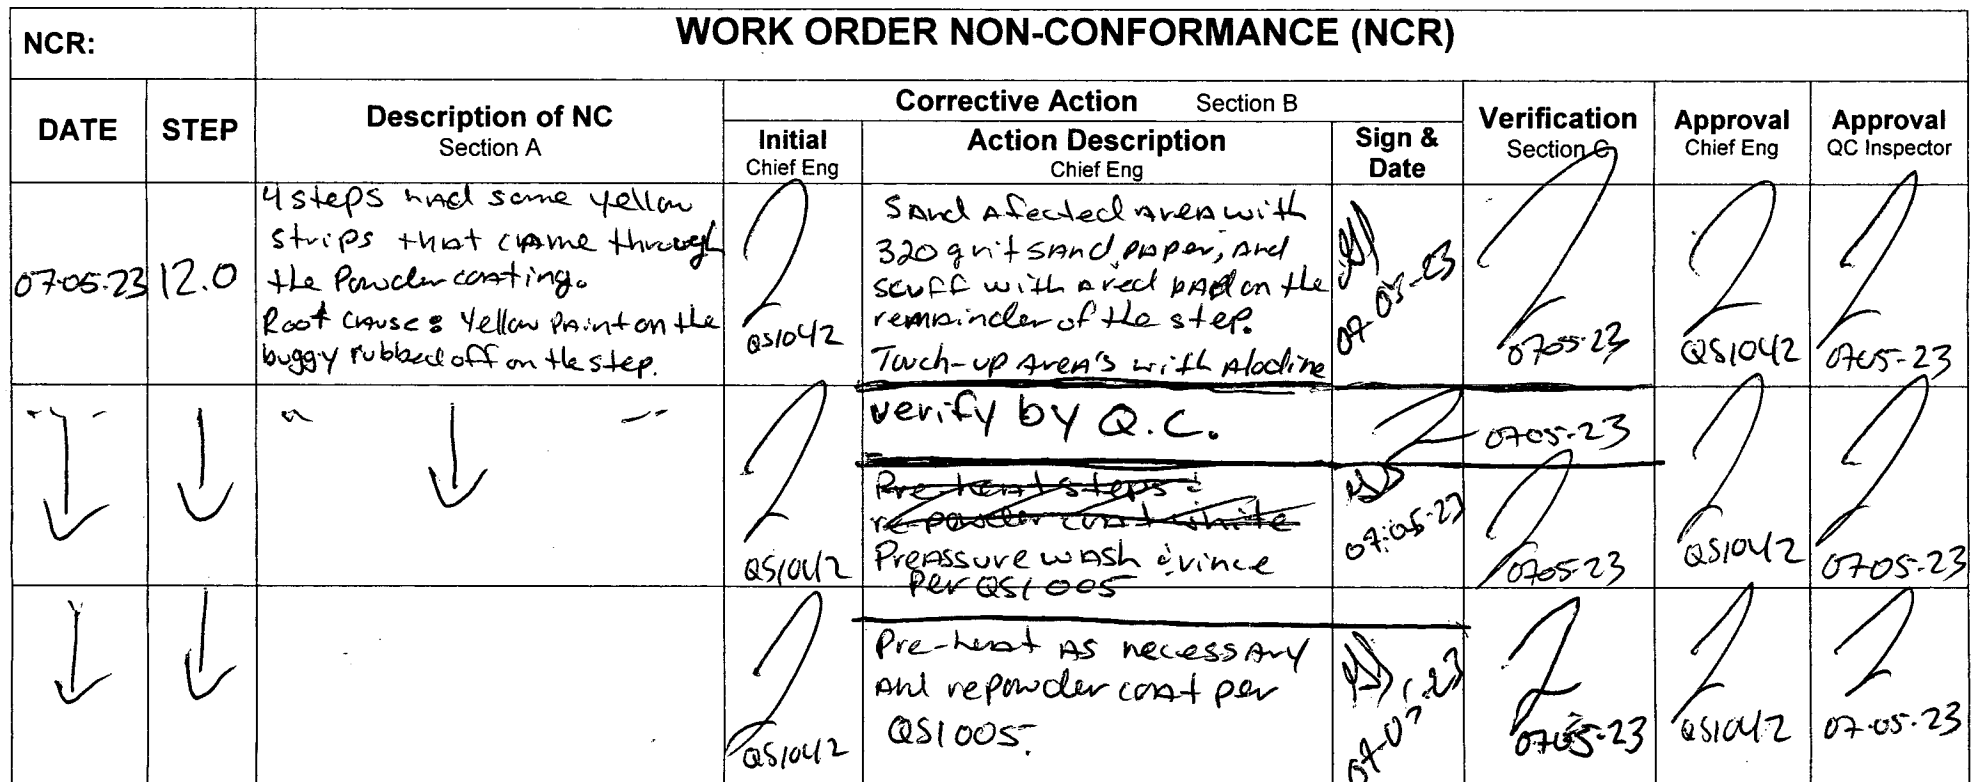 NCR:
WORK ORDER NON-CONFORMANCE (NCR)
DATE
STEP
Description of NC
Section A
Corrective Action Section B
Initial
Chief Eng
Action Description
Chief Eng
Sign &
Date
Verification
Section C
Approval
Chief Eng
Approval
QC Inspector
07-05-23
12.0
4 steps had some yellow
strips that came through
the Powder coating.
Root cause: Yellow Paint on the
buggy rubbed off on the step.
QS1042
Sand afected area with
320 grit sand paper, and
scuff with a red pad on the
remainder of the step.
Touch-up area's with Alodine
07-05-23
0705-23
QS1042
0705-23
verify by Q.C.
0705-23
QS1042
Pre-heat steps &
re-powder coat white
Preassure wash & rince
Per QS1005
07-05-23
0705-23
QS1042
0705-23
QS1042
Pre-heat as necessary
and repowder coat per
QS1005.
0705-23
QS1042
07-05-23